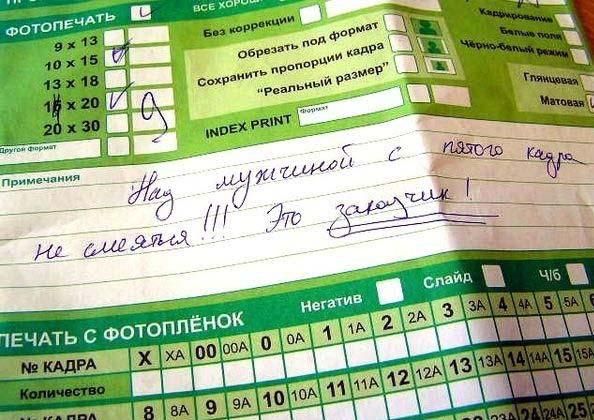 ВСЕ ХОРОШ
ФОТОПЕЧАТЬ
Без коррекции
Кадрирование
9 х 13
Обрезать под формат
Белые поля
10 х 15
Сохранить пропорции кадра
Чёрно-белый режим
13 х 18
"Реальный размер"
Глянцевая
х 20
9
Формат
Матовая
20 х 30
INDEX PRINT
Другой формат
Примечания
Над мужчиной с пятого кадра
не смеяться!!! Это заказчик!
Негатив
Слайд
Ч/б
ПЕЧАТЬ С ФОТОПЛЁНОК
№ КАДРА X XA 00 00A 0 0A 1 1A 2 2A 3 3A 4 4A 5 5A 6
Количество
8 8A 9 9A 10 10A 11 11A 12 12A 13 13A 14 14A 15 15A
№ КАДРА
23A 24 24A 25